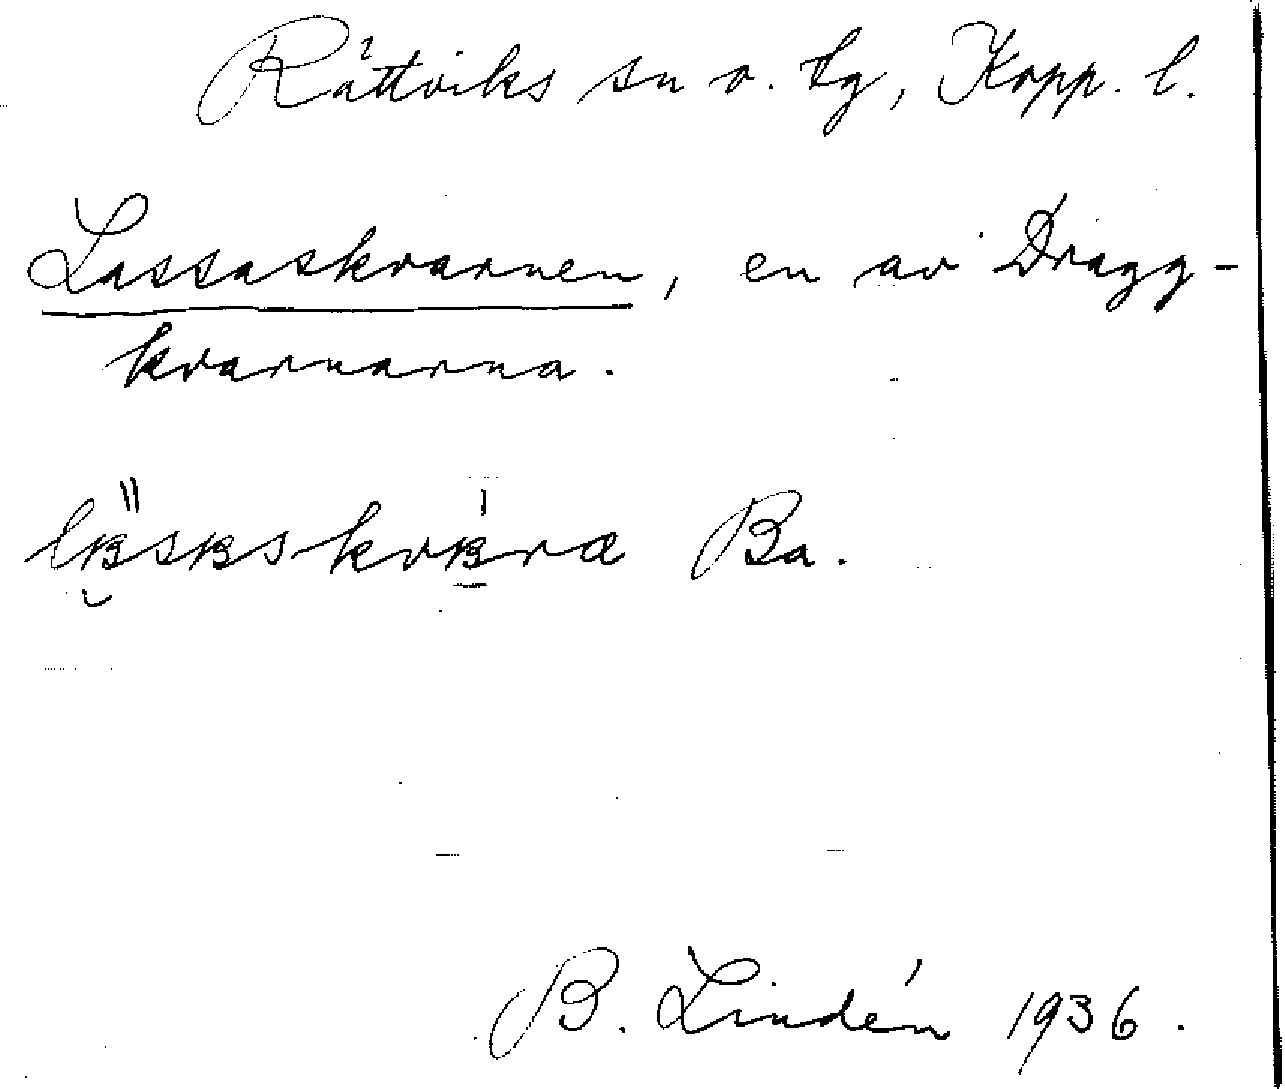 Rättviks sn o. tg, Kopp. l.
Lassaskvarnen, en av Dragg-
kvarnarna.
Ba.
B. Lindén 1936.